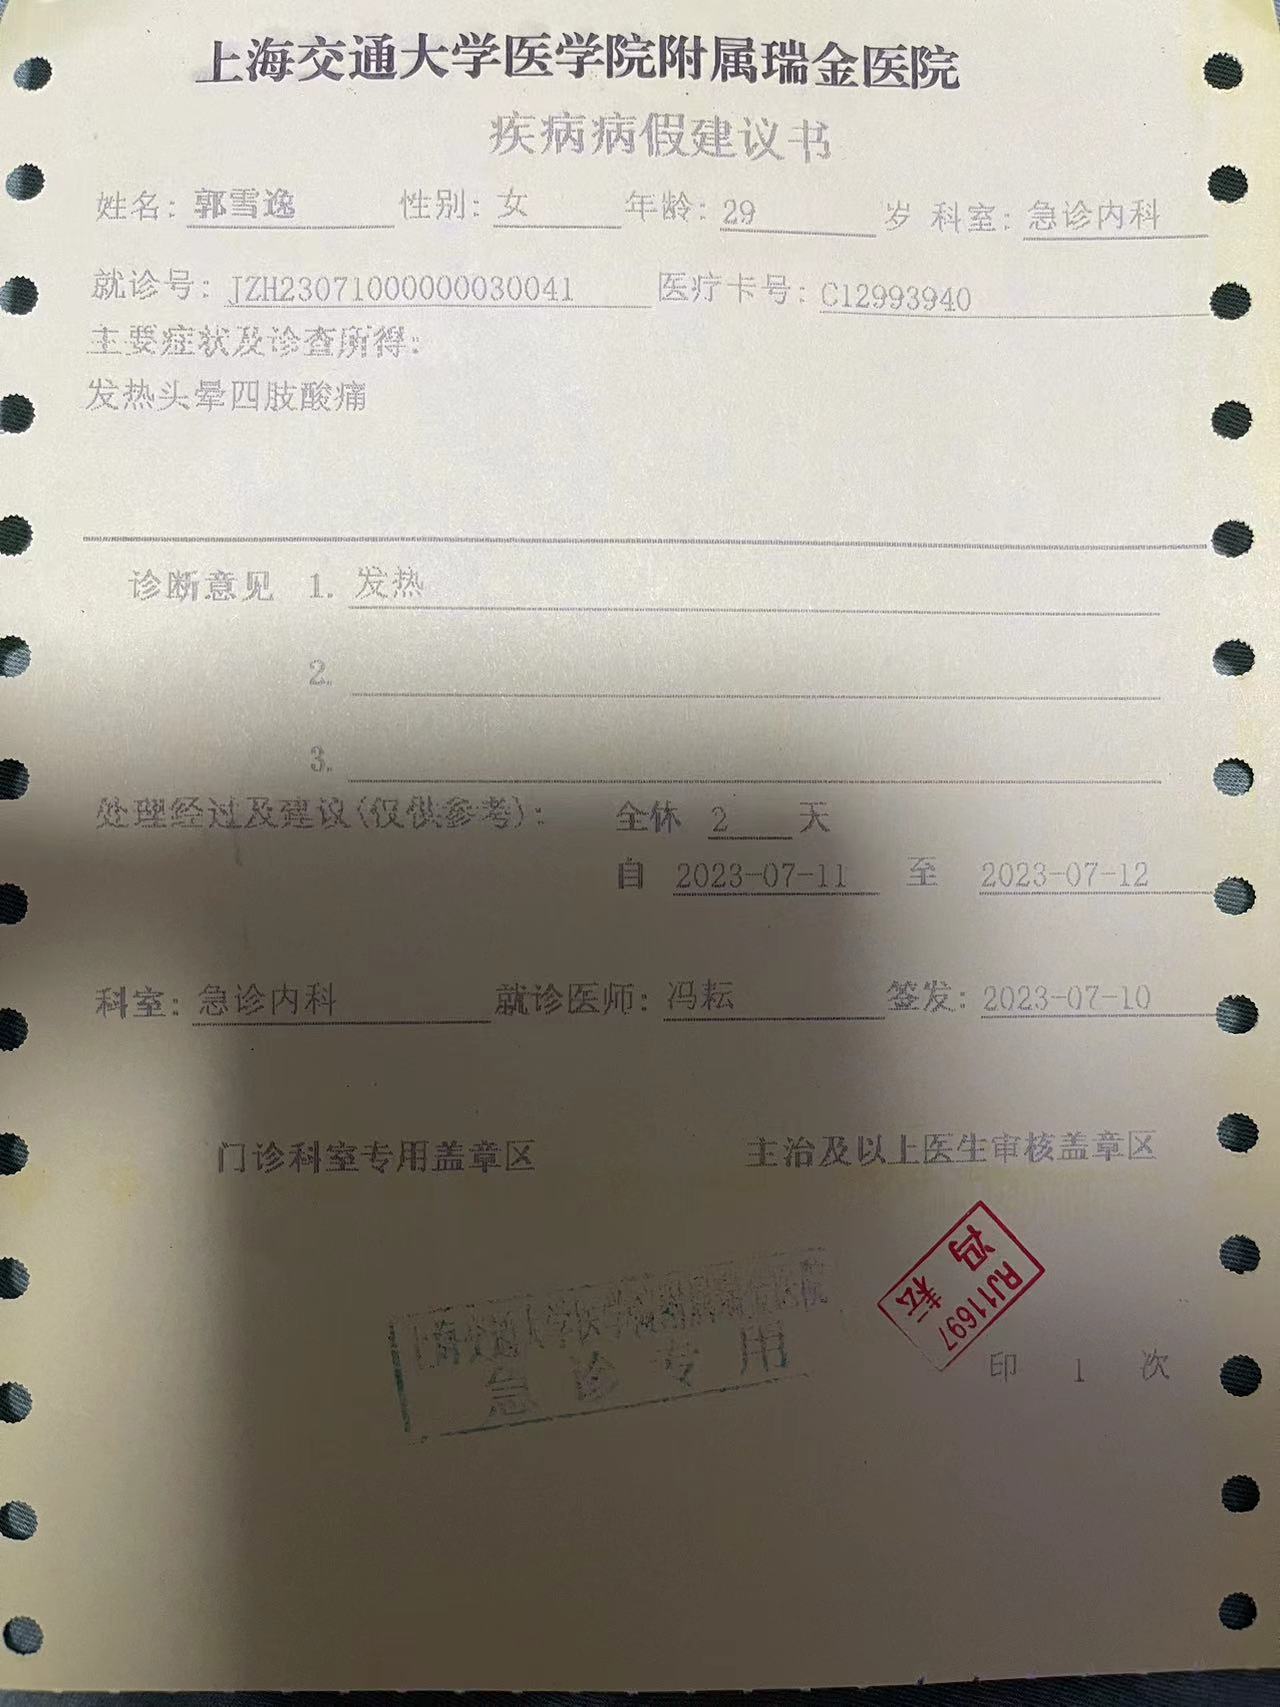 上海交通大学医学院附属瑞金医院
疾病病假建议书
姓名: 郭雪逸 性别: 女 年龄: 29 岁 科室: 急诊内科
就诊号: JZH23071000000030041 医疗卡号: C12993940
主要症状及诊查所得:
发热头晕四肢酸痛
诊断意见 1. 发热
2.
3.
处理经过及建议(仅供参考): 全休 2 天
自 2023-07-11 至 2023-07-12
科室: 急诊内科 就诊医师: 冯耘 签发: 2023-07-10
门诊科室专用盖章区 主治及以上医生审核盖章区
上海交通大学医学院附属瑞金医院
急诊专用
RJ11697
冯耘
印 1 次